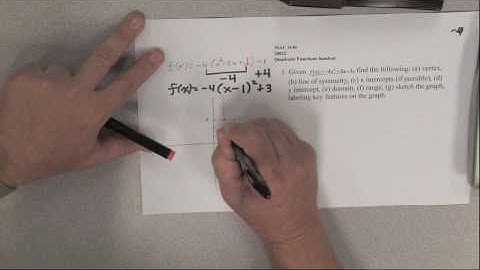 -4
f(x)=-4(x²-2x+1)-1
-4 +4
f(x)=-4(x-1)²+3
Quadratic Functions handout
1. Given, find the following: (a) vertex,
(b) line of symmetry, (c) x intercepts (if possible), (d)
y intercept, (e) domain, (f) range, (g) sketch the graph,
labeling key features on the graph.